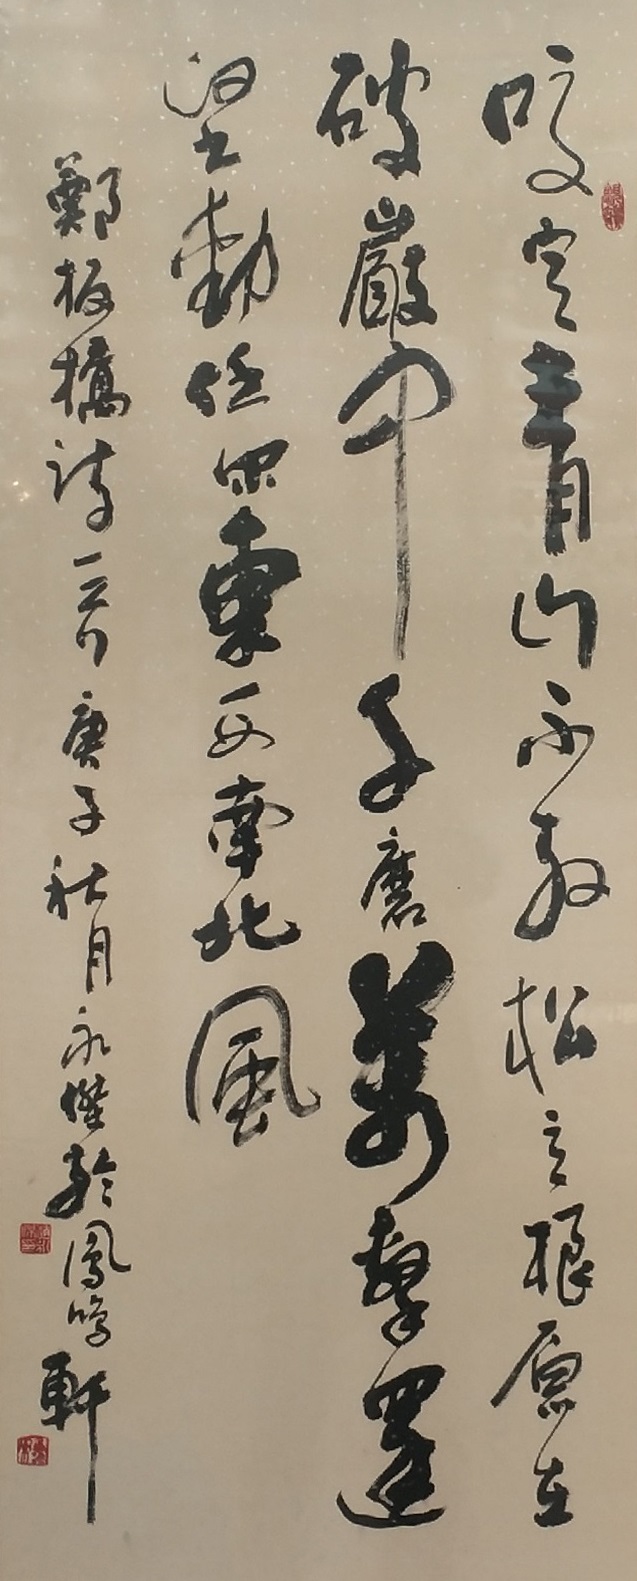 咬定青山不放松立根原在
破巖中千磨萬擊還
堅勁任爾東西南北風
鄭板橋詩一首庚子秋月永傑於鳳鳴軒